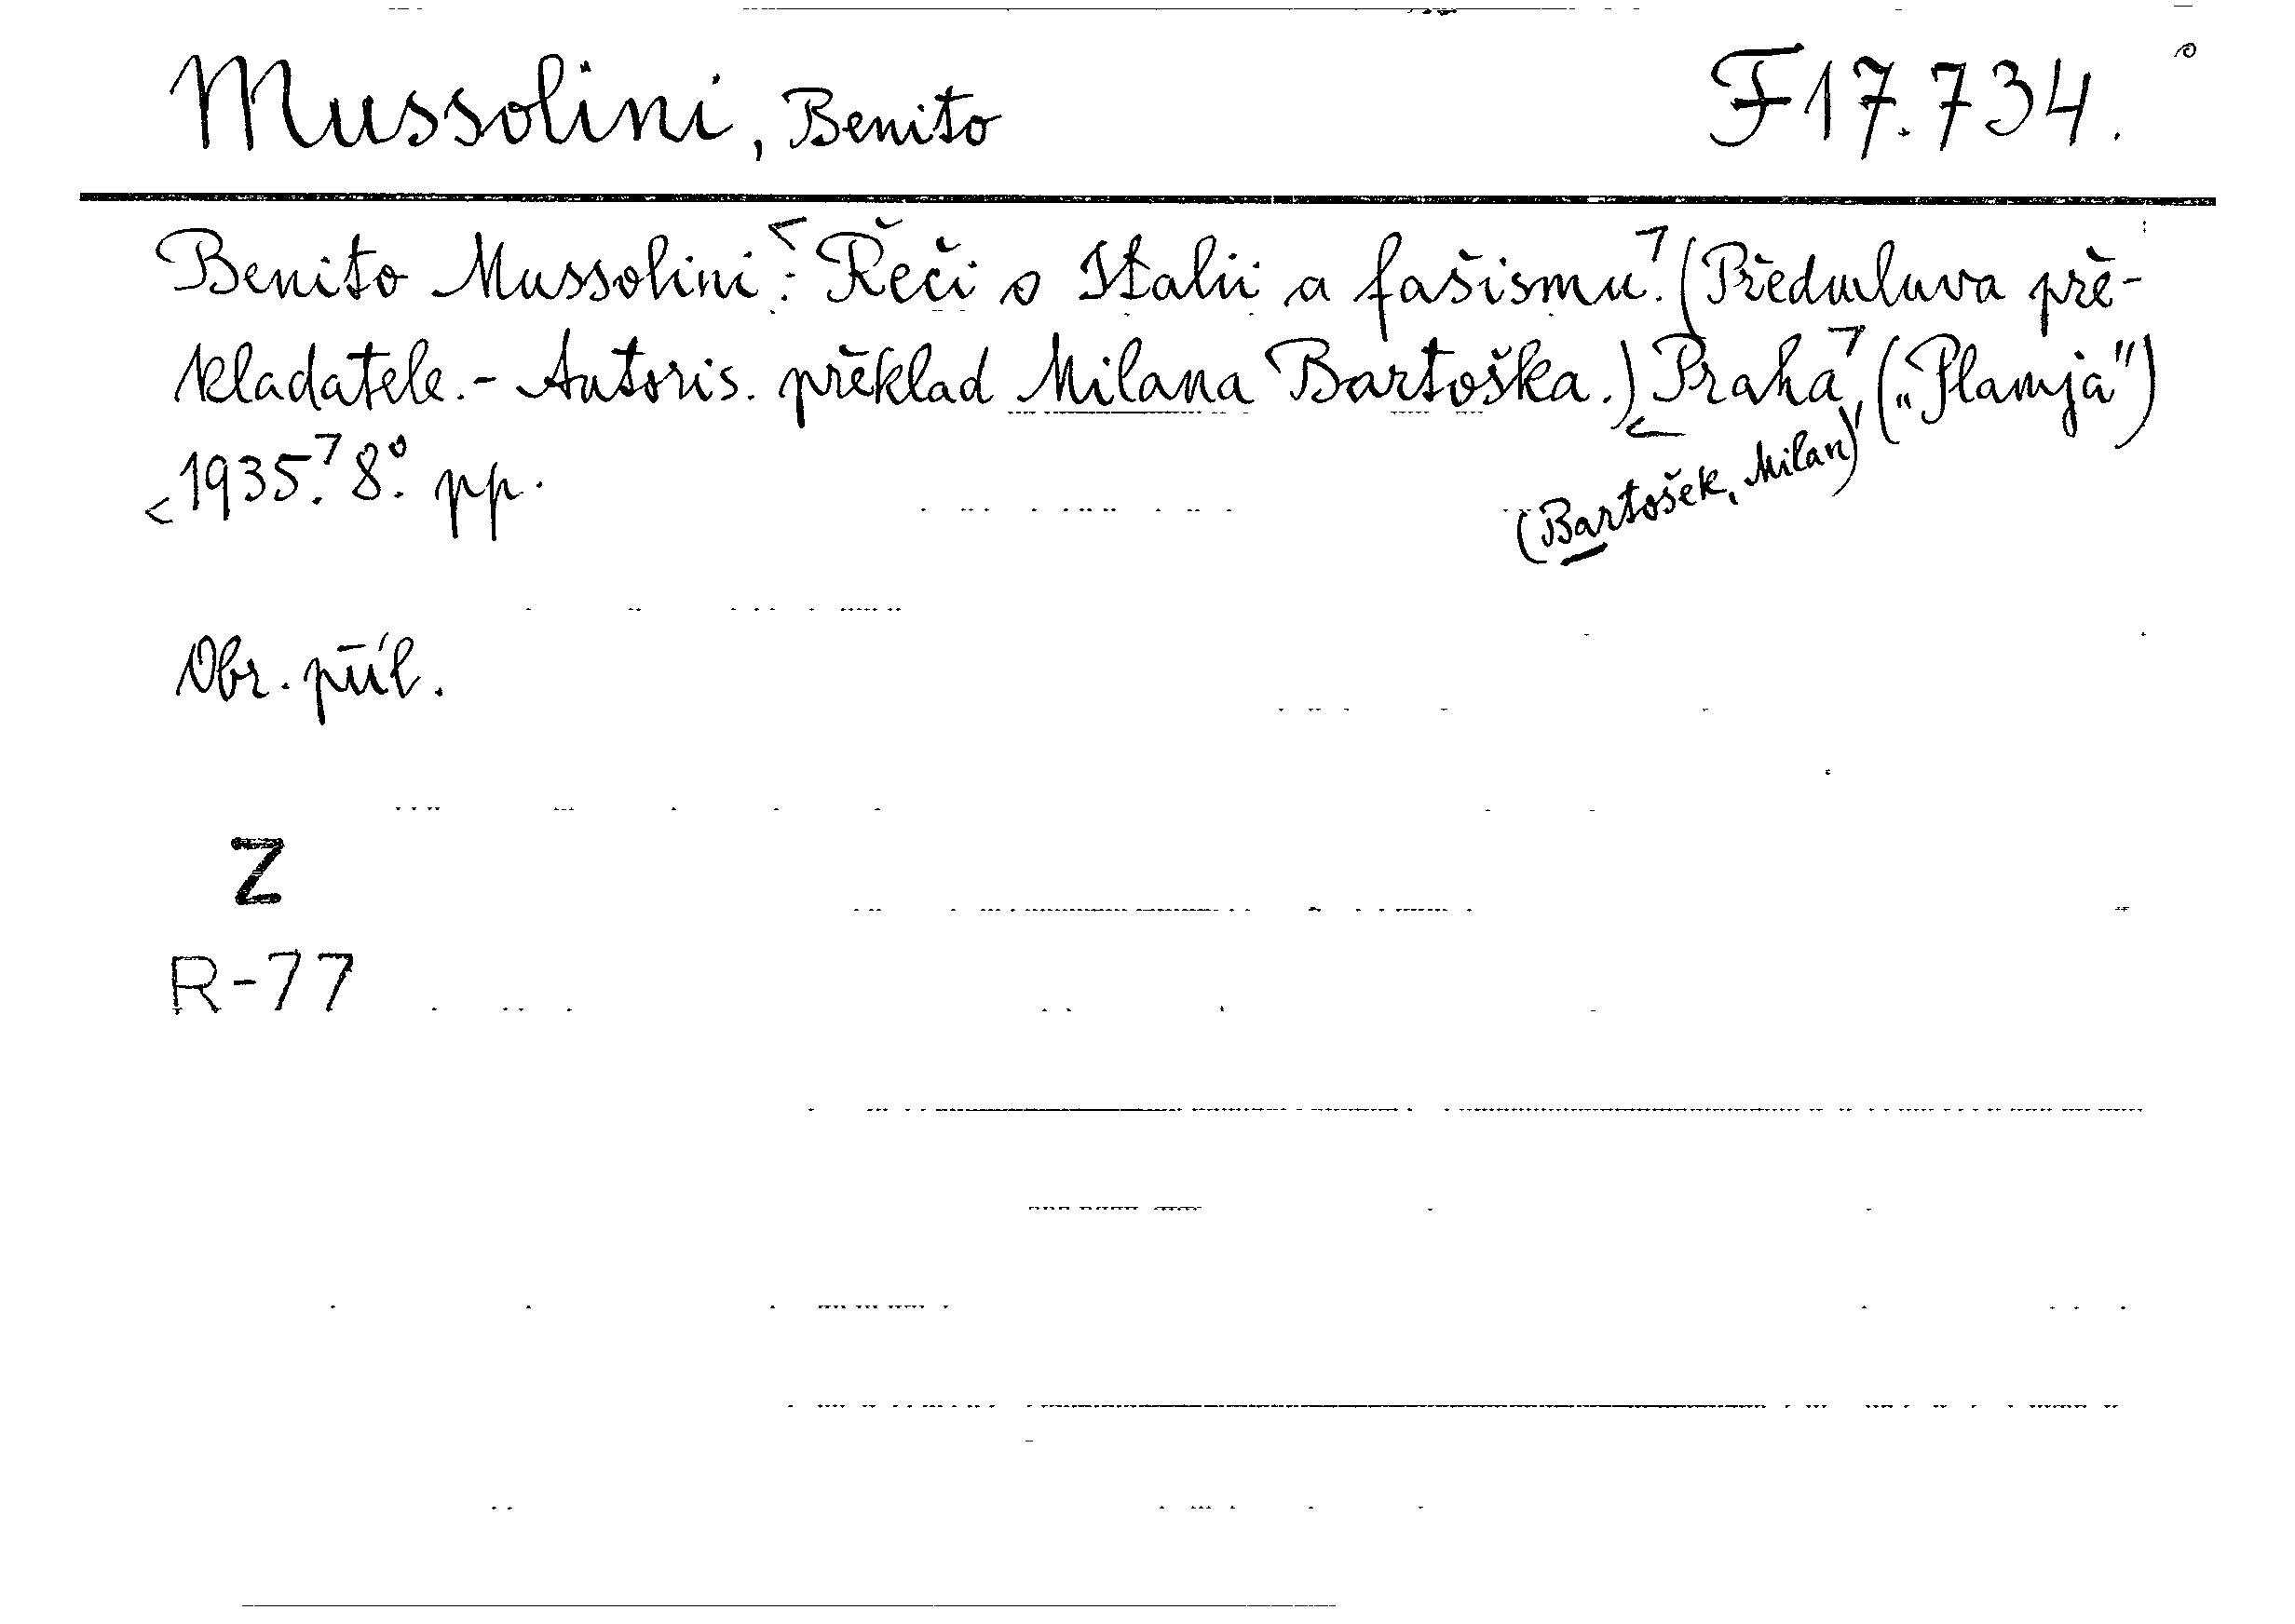 Mussolini, Benito F 17.734.
Benito Mussolini: Řeči o Italii a fašismu. (Předmluva pře-
kladatele. - Autoris. překlad Milana Bartoška.) Praha, („Plamja")
1935. 8°. pp.
(Bartošek, Milan)
Obr. příl.
Z
R-77